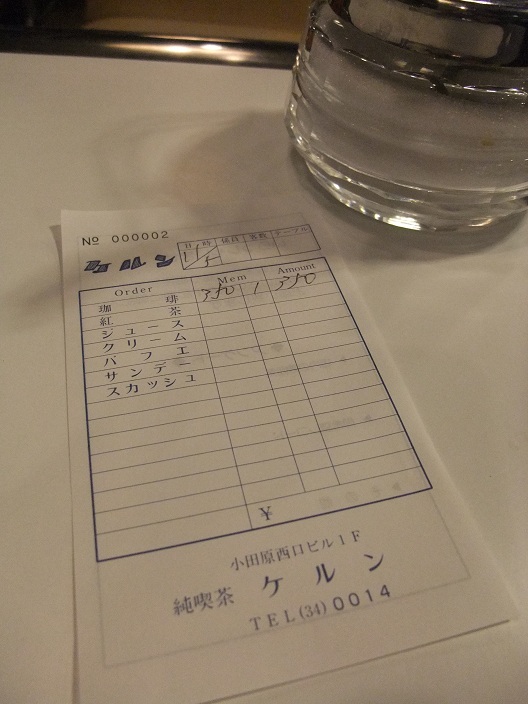 № 000002
ケルン
日 時 係員 客数 テーブル
Order Mem Amount
珈琲 1
紅茶
ジュース
クリーム
パフエ
サンデー
スカッシュ
¥
小田原西口ビル1F
純喫茶 ケルン
TEL(34)0014